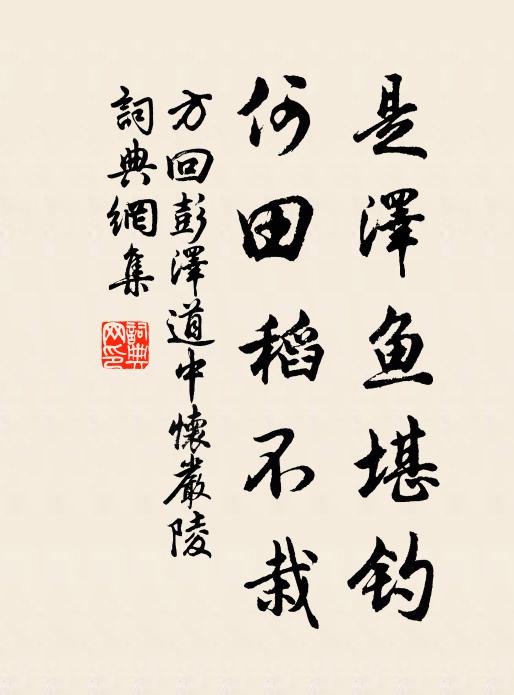 是澤鱼堪钓
何田稻不栽
方回彭澤道中懷嚴陵
詞典網集
詞典网印